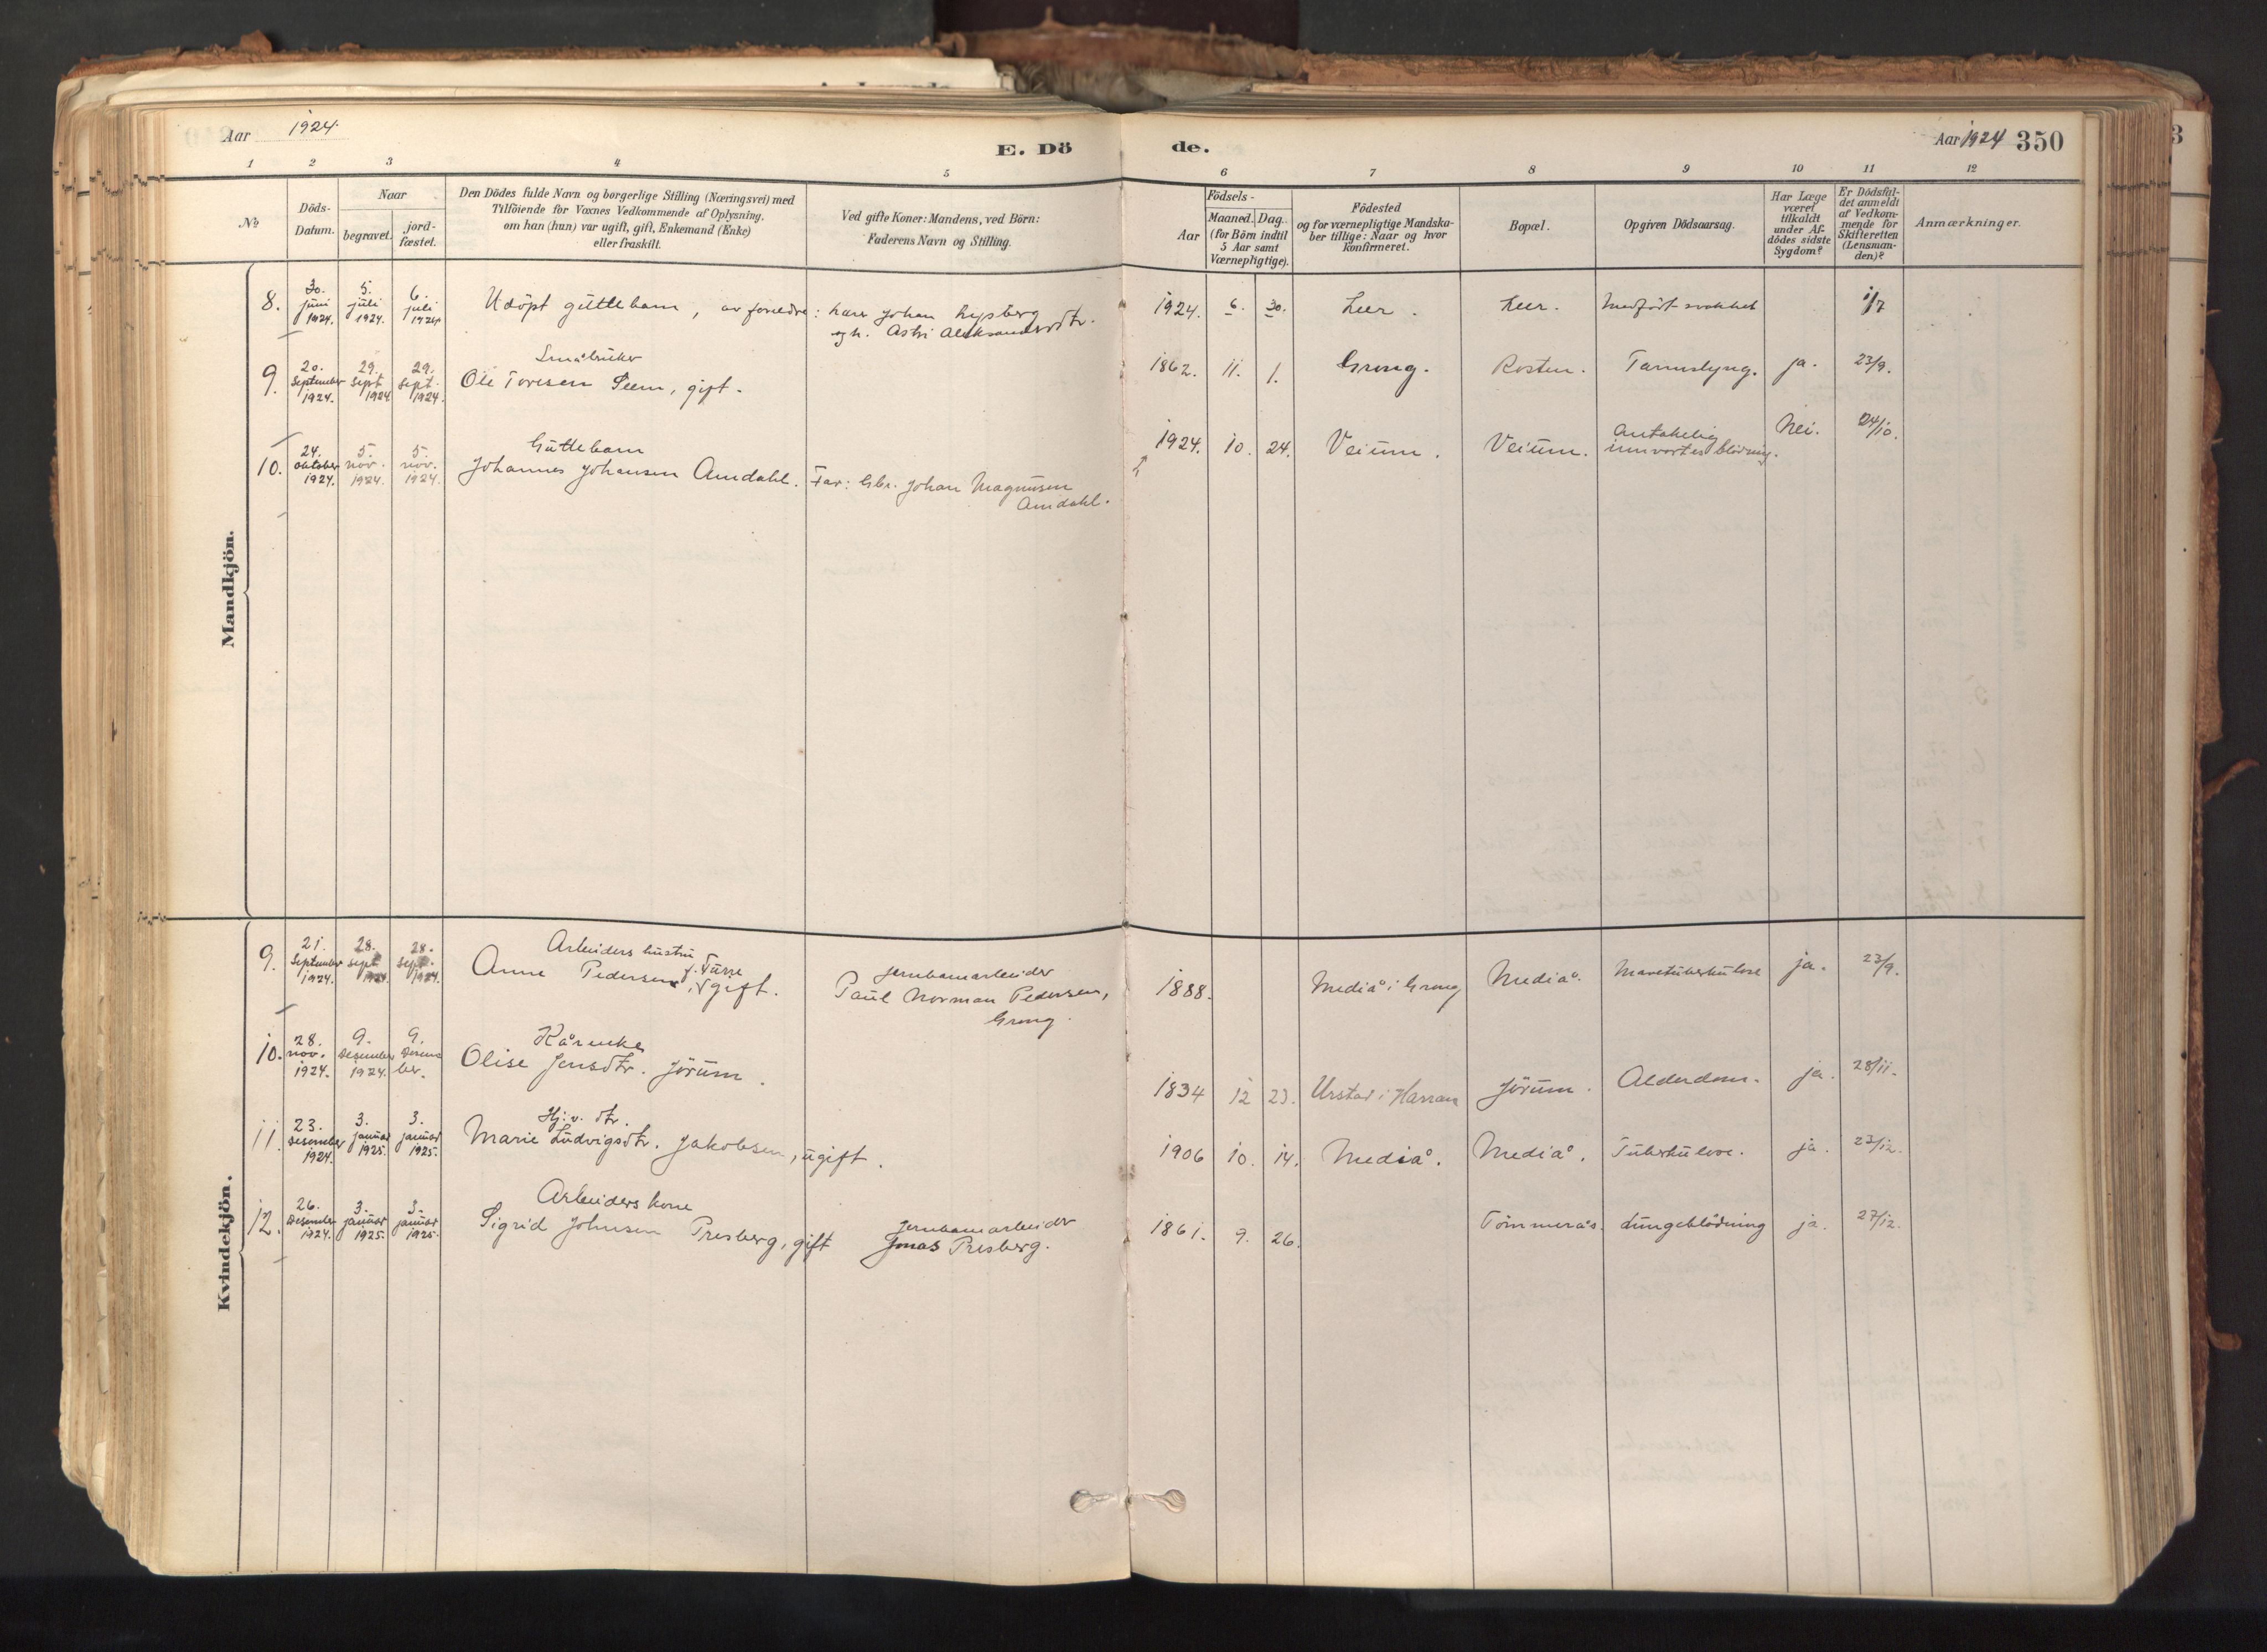 Aar 1924.
E. Dö
de.
Aar 1924 350
1 2 3 4 5 6 7 8 9 10 11 12
No
Döds-
Datum.
Naar
begravet.
jord-
fæstet.
Den Dödes fulde Navn og borgerlige Stilling (Næringsvei) med
Tilföiende for Voxnes Vedkommende af Oplysning,
om han (hun) var ugift, gift, Enkemand (Enke)
eller fraskilt.
Ved gifte Koner: Mandens, ved Börn:
Faderens Navn og Stilling.
Födsels-
Aar
Maaned. Dag.
(for Börn indtil
5 Aar samt
Værnepligtige).
Födested
og for værnepligtige Mandska-
ber tillige: Naar og hvor
konfirmeret.
Bopæl.
Opgiven Dödsaarsag.
Har Læge
været
tilkaldt
under Af-
dödes sidste
Sygdom?
Er Dödsfal-
det anmeldt
af Vedkom-
mende for
Skifteretten
(Lensman-
den)?
Anmærkninger.
Mandkjön.
8. 30. juni 1924. 5. juli 1924. 6. juli 1924 Udöpt guttebarn, av foreldre: Johan Lysberg
og h. Astri Aleksandersdtr.
1924. 6. 30. Leer. Leer. Medfödt svakhet 1/7
Småbruker
9. 20. September 1924. 29. Sept 1924 29. Sept. 1924. Ole Toresen Seem, gift.
1862. 11. 1. Grong. Rosten. Tarmslyng. ja. 23/9.
Guttebarn
10. 24. oktober 1924. 5. nov. 1924. 5. nov. 1924. Johannes Johansen Amdahl. Far: Gbr. Johan Magnusen
Amdahl.
1924. 10. 24. Veium. Veium. Antakelig
innvortes blödning. Nei. 24/10.
Kvindekjön.
Arbeiders hustru
9. 21. September 1924. 28. sept 1924 28. sept. 1924. Anne Pedersen, f. Türre gift.
Jernbanearbeider
Paul Norman Pedersen,
Grong.
1888. Mediå i Grong Mediå. Mavetuberkulose ja. 23/9.
Kårenke
10. 28. nov. 1924. 9. Desember 1924. 9. Desem ber. Olise Jensdtr. Jörum.
1834 12 23. Urstad i Harran Jörum. Alderdom. ja. 28/11.
Hj. v. dtr.
11. 23. Desember 1924. 3. januar 1925. 3. januar 1925. Marie Ludvigsdtr. Jakobsen, ugift.
1906 10. 14. Mediå. Mediå. Tuberkulose. ja. 23/12.
Arbeiders kone
12. 26. Desember 1924. 3. januar 1925. 3. januar 1925. Sigrid Johnsen Presberg, gift
Jernbanearbeider
Jonas Presberg.
1861. 9. 26. Tömmerås. Lungeblödning ja. 27/12.